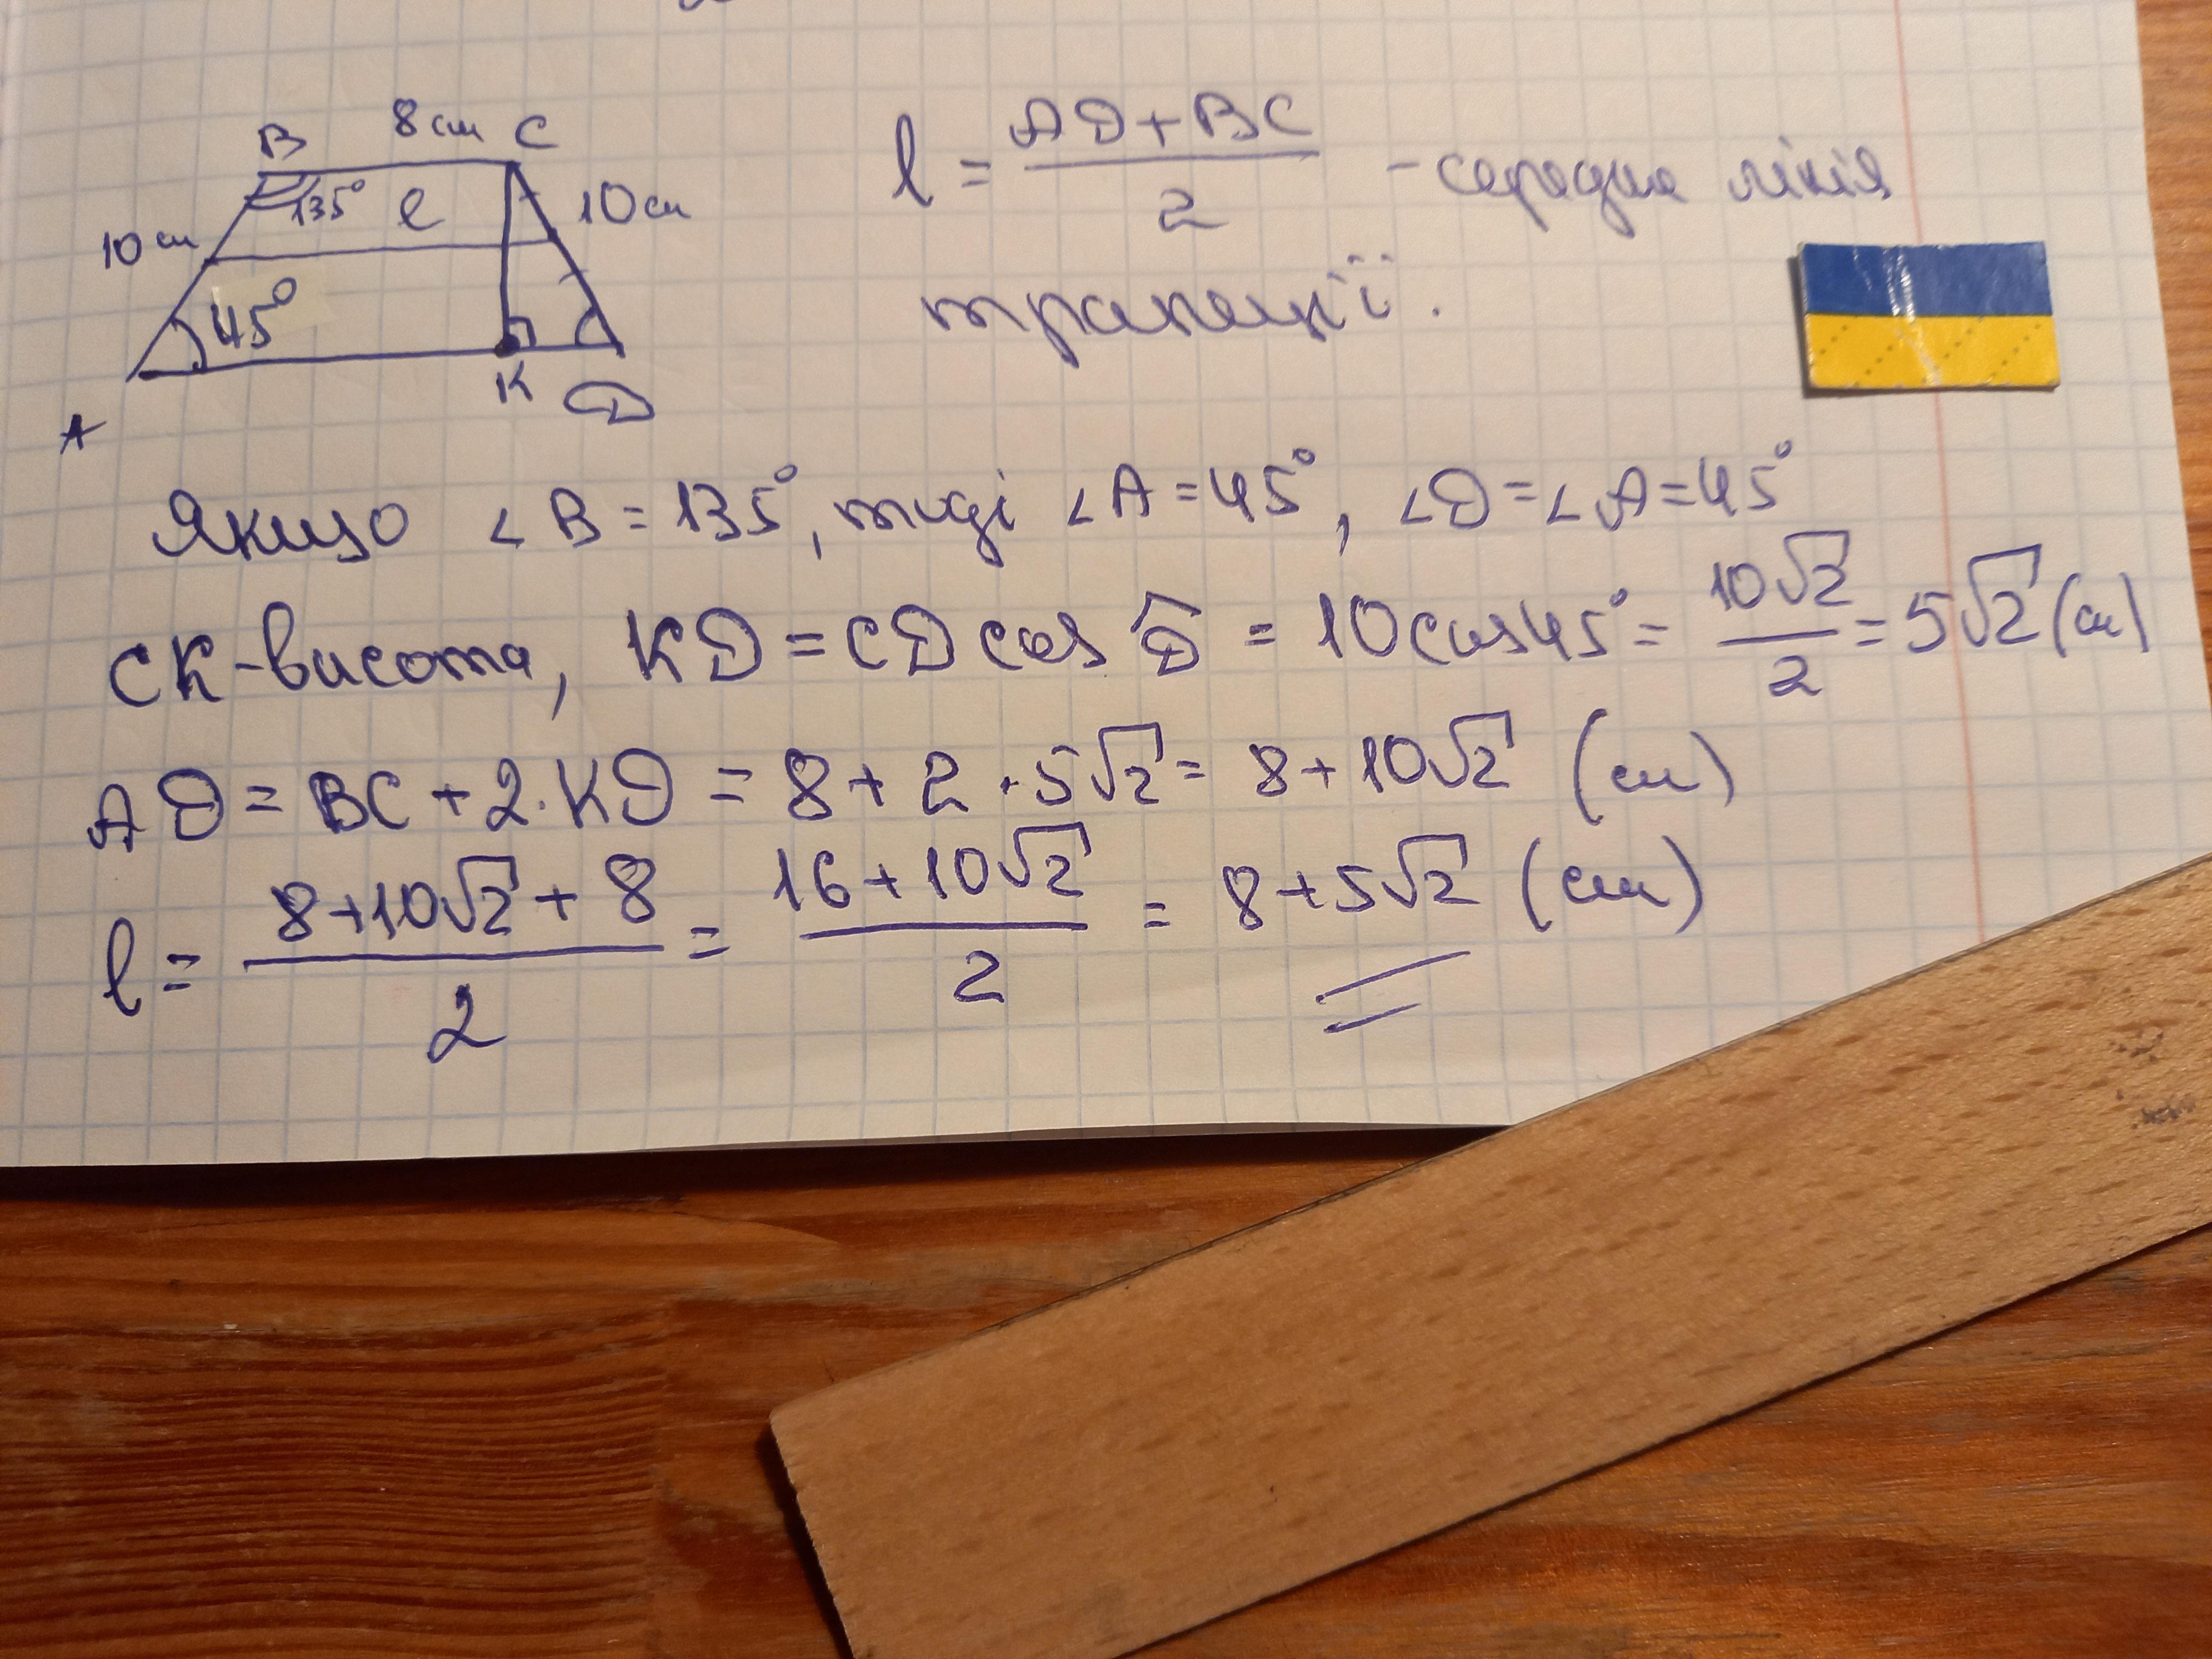 B 8 см C
135° l
10 см 10 см
45°
A K D
l = (AD + BC)/2 - середня лінія
трапеції.
Якщо ∠B = 135°, тоді ∠A = 45°, ∠D = ∠A = 45°
CK - висота, KD = CD cos D̂ = 10 cos 45° = 10√2/2 = 5√2 (см)
AD = BC + 2·KD = 8 + 2·5√2 = 8 + 10√2 (см)
l = (8 + 10√2 + 8)/2 = (16 + 10√2)/2 = 8 + 5√2 (см)